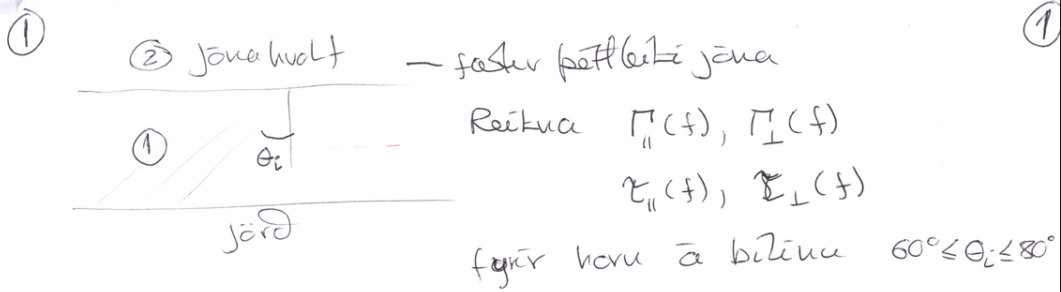 ① ①
② Jónahvolf — fastur þéttleiki jóna
Reikna Γ∥(f), Γ⊥(f)
① θi
τ∥(f), τ⊥(f)
Jörð
fyrir horn á bilinu 60°≤θi≤80°